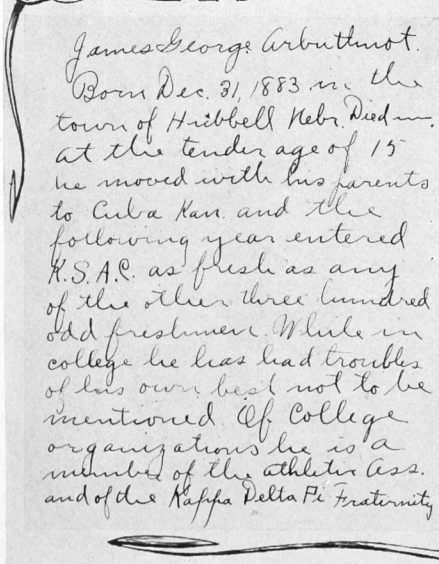 James George Arbuthnot.
Born Dec. 31, 1883 in the
town of Hubbell Nebr. Died in.
At the tender age of 15
he moved with his parents
to Cuba Kan. and the
following year entered
K.S.A.C. as fresh as any
of the other three hundred
odd freshmen. While in
college he has had troubles
of his own best not to be
mentioned. Of College
organizations he is a
member of the athletic Ass.
and of the Kappa Delta Pi Fraternity